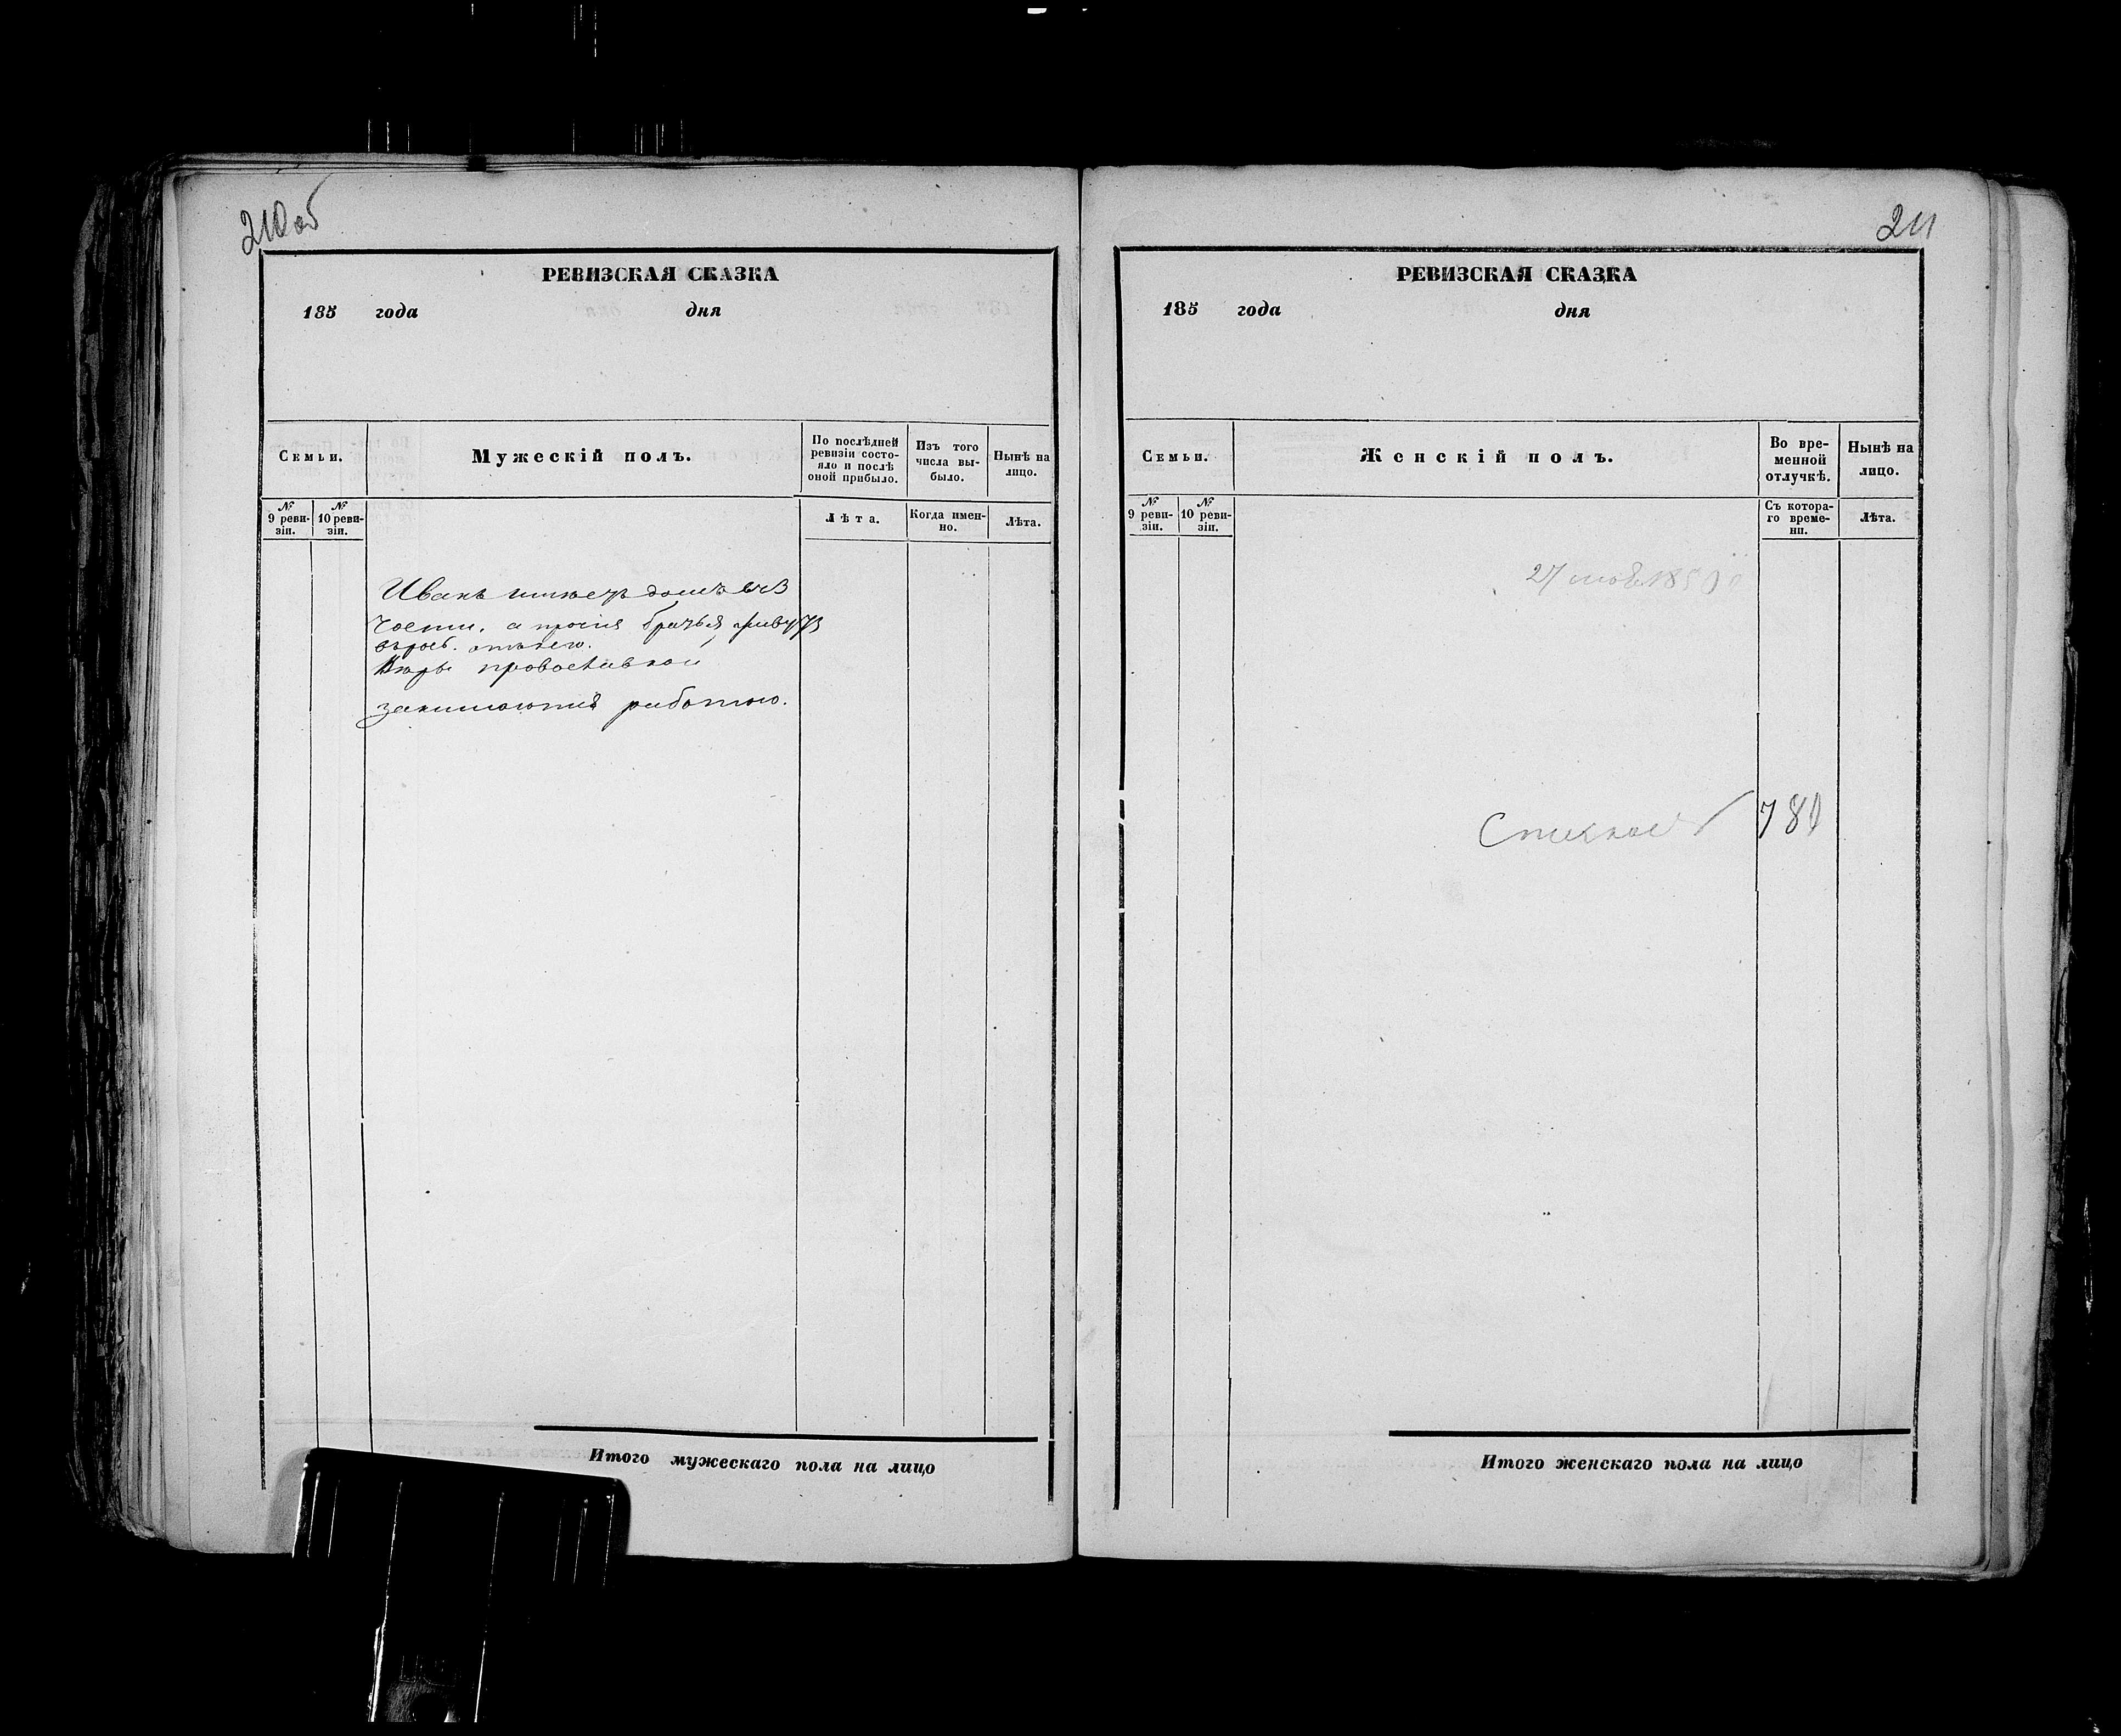 210 об
РЕВИЗСКАЯ СКАЗКА
185 года дня
Семьи.
Мужескій полъ.
По послѣдней ревизіи состо-
яло и послѣ оной прибыло.
Изъ того числа вы-
было.
Нынѣ на лицо.
№ 9 реви-
зіи.
№ 10 реви-
зіи.
Лѣта.
Когда имен-
но.
Лѣта.
Иванъ имѣетъ домъ въ 3
части, а прочія братья живутъ
Вѣры православной
занимаются работою.
Итого мужескаго пола на лицо
211
РЕВИЗСКАЯ СКАЗКА
185 года дня
Семьи.
Женскій полъ.
Во вре-
менной
отлучкѣ.
Нынѣ на
лицо.
№ 9 реви-
зіи.
№ 10 реви-
зіи.
Съ котора-
го време-
ни.
Лѣта.
27
Итого женскаго пола на лицо